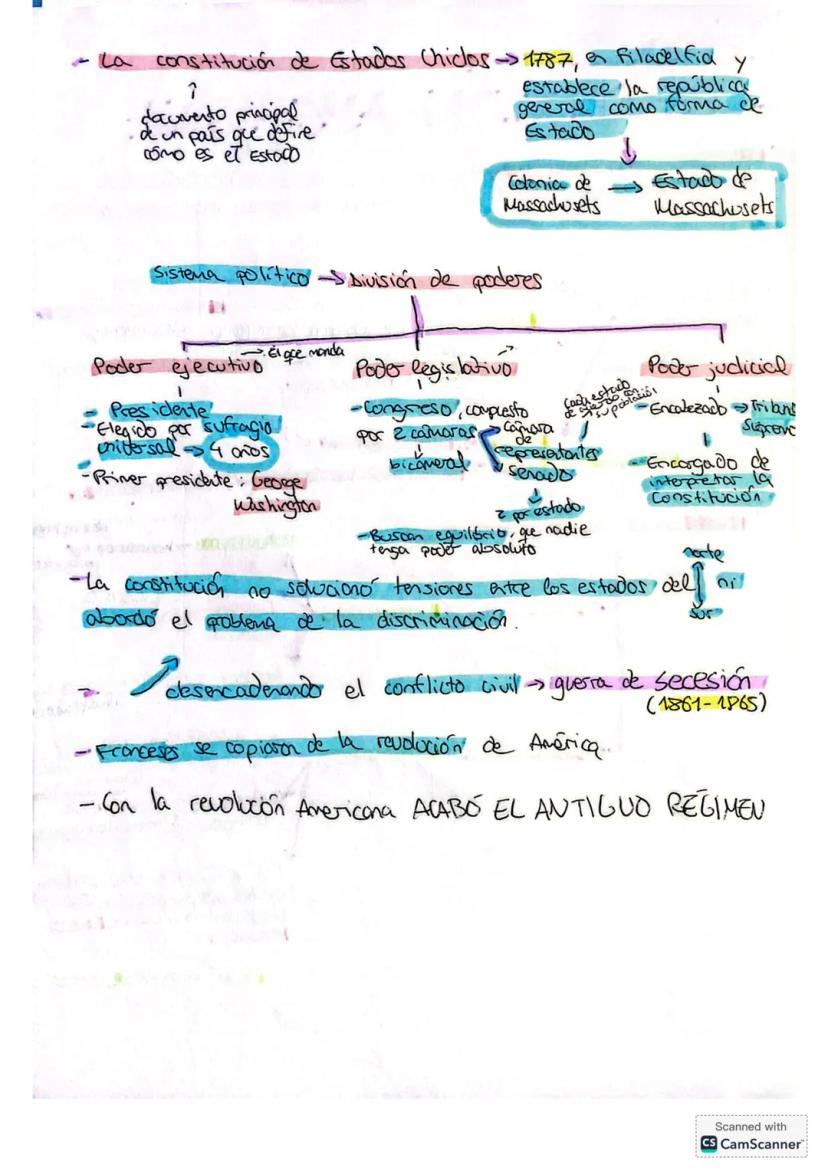 - La constitución de Estados Unidos → 1787, en Filadelfia y
establece la república
general como forma de
Estado
documento principal
de un país que define
cómo es el Estado
Colonia de → Estado de
Massachusets Massachusets
Sistema político → División de poderes
Poder ejecutivo → El que manda
- Presidente
- Elegido por sufragio
universal → 4 años
- Primer presidente: George
Washington
Poder legislativo →
- Congreso, compuesto
por 2 cámaras
bicameral
Cámara
de
representantes
cada estado
su población
Senado
2 por estado
- Buscan equilibrio, que nadie
tenga poder absoluto
Poder judicial
- Encabezado → Tribuna
Supremo
- Encargado de
interpretar la
Constitución
- La constitución no solucionó tensiones entre los estados del norte sur ni
abordó el problema de la discriminación.
- desencadenando el conflicto civil → guerra de secesión
(1861-1865)
- Franceses se copiaron de la revolución de América
- Con la revolución Americana ACABÓ EL ANTIGUO RÉGIMEN
Scanned with
CS CamScanner